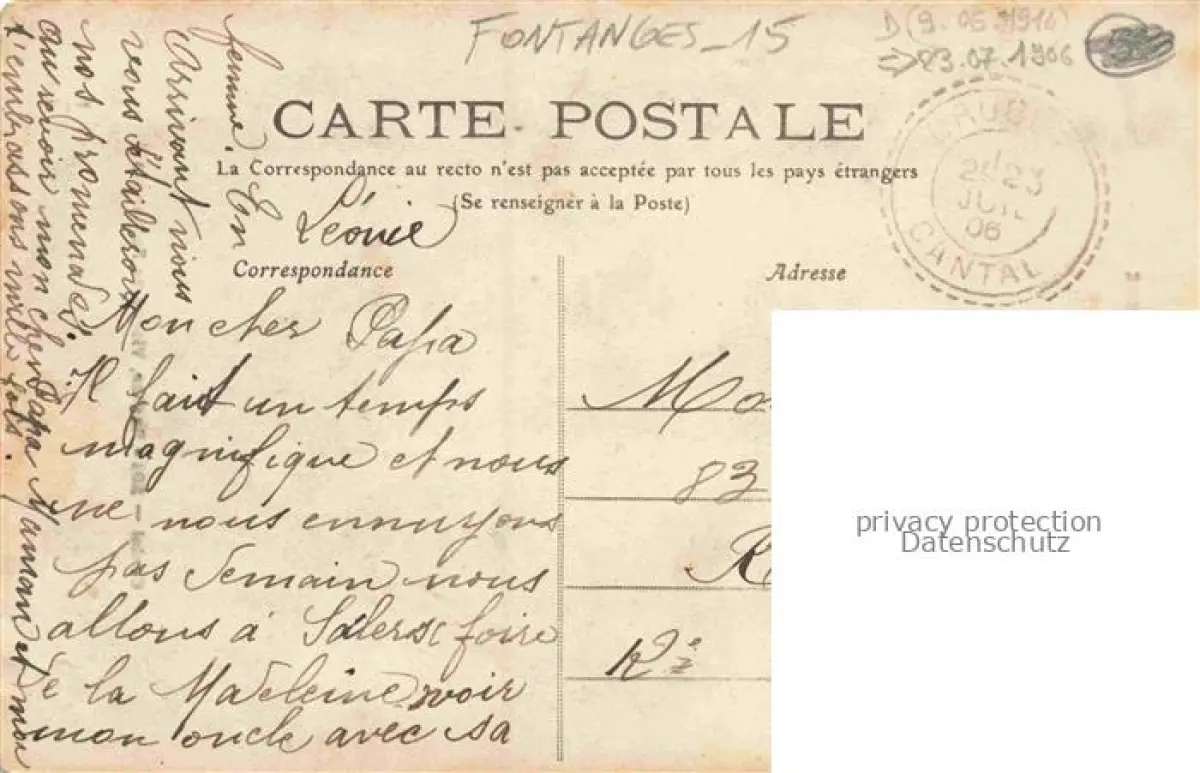 FONTANGES_15
D(9.06.1914)
=>23.07.1906
CARTE POSTALE
La Correspondance au recto n'est pas acceptée par tous les pays étrangers
(Se renseigner à la Poste)
Correspondance
Adresse
23
JUIL
06
CANTAL
Mon cher Papa
Il fait un temps
magnifique et nous
ne nous ennuyons
pas Demain nous
allons à Salers (foire
de la Madeleine, voir
mon oncle avec sa
femme. En
arrivant nous
vous détaillerons
nos promenades.
au revoir mon cher Papa Maman et mon
t'embrassons mille fois.
Léonie
83
privacy protection
Datenschutz